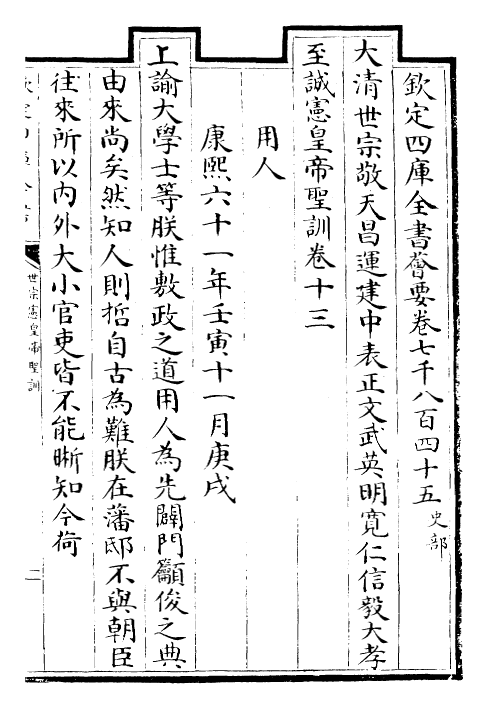 欽定四庫全書薈要卷七千八百四十五 史部
大清世宗敬天昌運建中表正文武英明寬仁信毅大孝
至誠憲皇帝聖訓卷十三
用人
康熙六十一年壬寅十一月庚戌
上諭大學士等朕惟敷政之道用人為先闢門籲俊之典
由來尚矣然知人則哲自古為難朕在藩邸不與朝臣
往來所以內外大小官吏皆不能晰知今荷
世宗憲皇帝聖訓